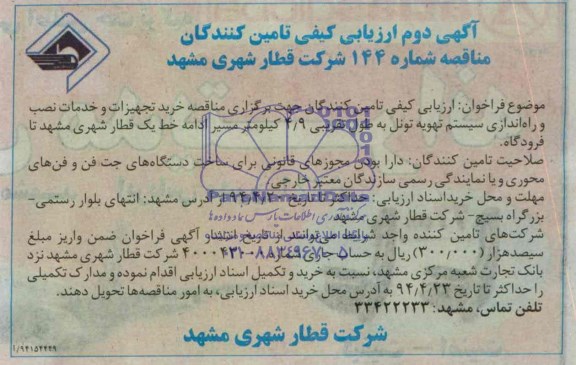 آگهی دوم ارزیابی کیفی تامین کنندگان
مناقصه شماره ۱۴۴ شرکت قطار شهری مشهد
موضوع فراخوان: ارزیابی کیفی تامین کنندگان جهت برگزاری مناقصه خرید تجهیزات و خدمات نصب
و راه‌اندازی سیستم تهویه تونل به طول تقریبی ۴/۹ کیلومتر مسیر ادامه خط یک قطار شهری مشهد تا
فرودگاه.
صلاحیت تامین کنندگان: دارا بودن مجوزهای قانونی برای ساخت دستگاه‌های جت فن و فن‌های
محوری و یا نمایندگی رسمی سازندگان معتبر خارجی
مهلت و محل خرید اسناد ارزیابی: حداکثر تا تاریخ از آدرس مشهد: انتهای بلوار رستمی-
بزرگراه بسیج- شرکت قطار شهری مشهد
شرکت‌های تامین کننده واجد شرایط می‌توانند از تاریخ انتشار آگهی فراخوان ضمن واریز مبلغ
سیصدهزار (۳۰۰/۰۰۰) ریال به حساب جاری شرکت قطار شهری مشهد نزد
بانک تجارت شعبه مرکزی مشهد، نسبت به خرید و تکمیل اسناد ارزیابی اقدام نموده و مدارک تکمیلی
را حداکثر تا تاریخ ۹۴/۴/۲۳ به آدرس محل خرید اسناد ارزیابی، به امور مناقصه‌ها تحویل دهند.
تلفن تماس، مشهد: ۳۳۴۲۲۲۳۳
شرکت قطار شهری مشهد